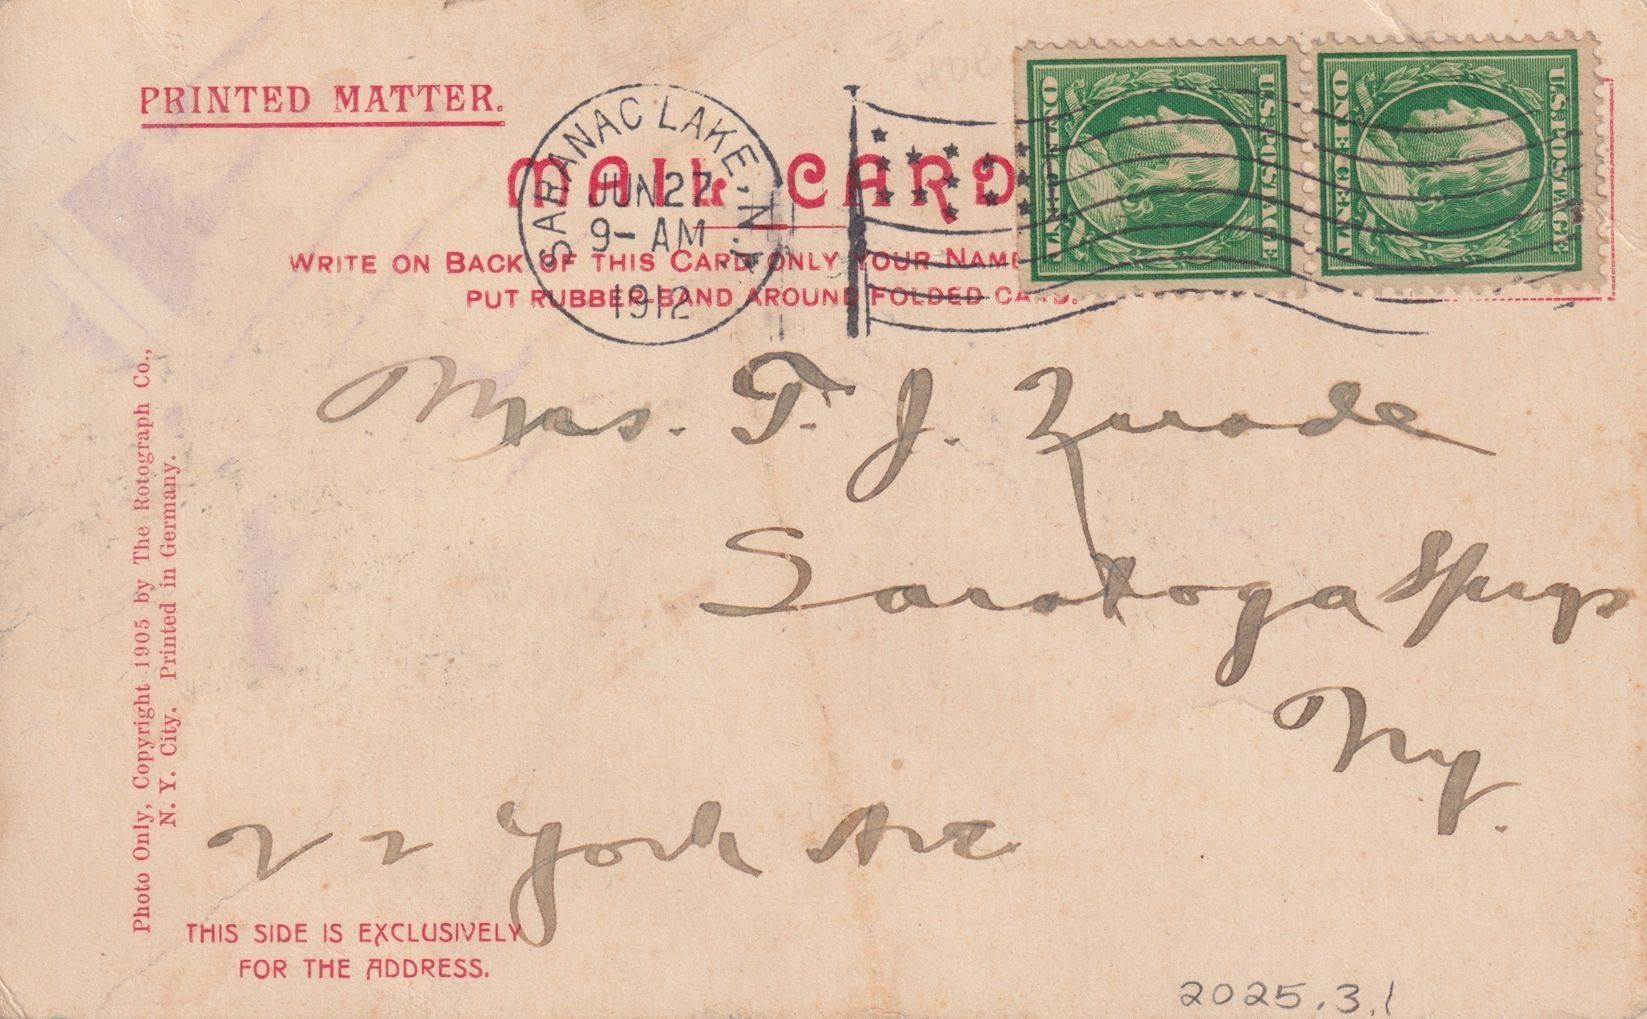 PRINTED MATTER.
MAIL CARD
SARANAC LAKE, N.Y.
JUN 27
9- AM
1912
U.S. POSTAGE
ONE CENT
U.S. POSTAGE
ONE CENT
WRITE ON BACK OF THIS CARD ONLY YOUR NAME
PUT RUBBER-BAND AROUND FOLDED CARD.
Mrs. T. J.
Saratoga Spngs
Ny.
22 York Ave
Photo Only, Copyright 1905 by The Rotograph Co.,
N. Y. City. Printed in Germany.
THIS SIDE IS EXCLUSIVELY
FOR THE ADDRESS.
2025.3.1